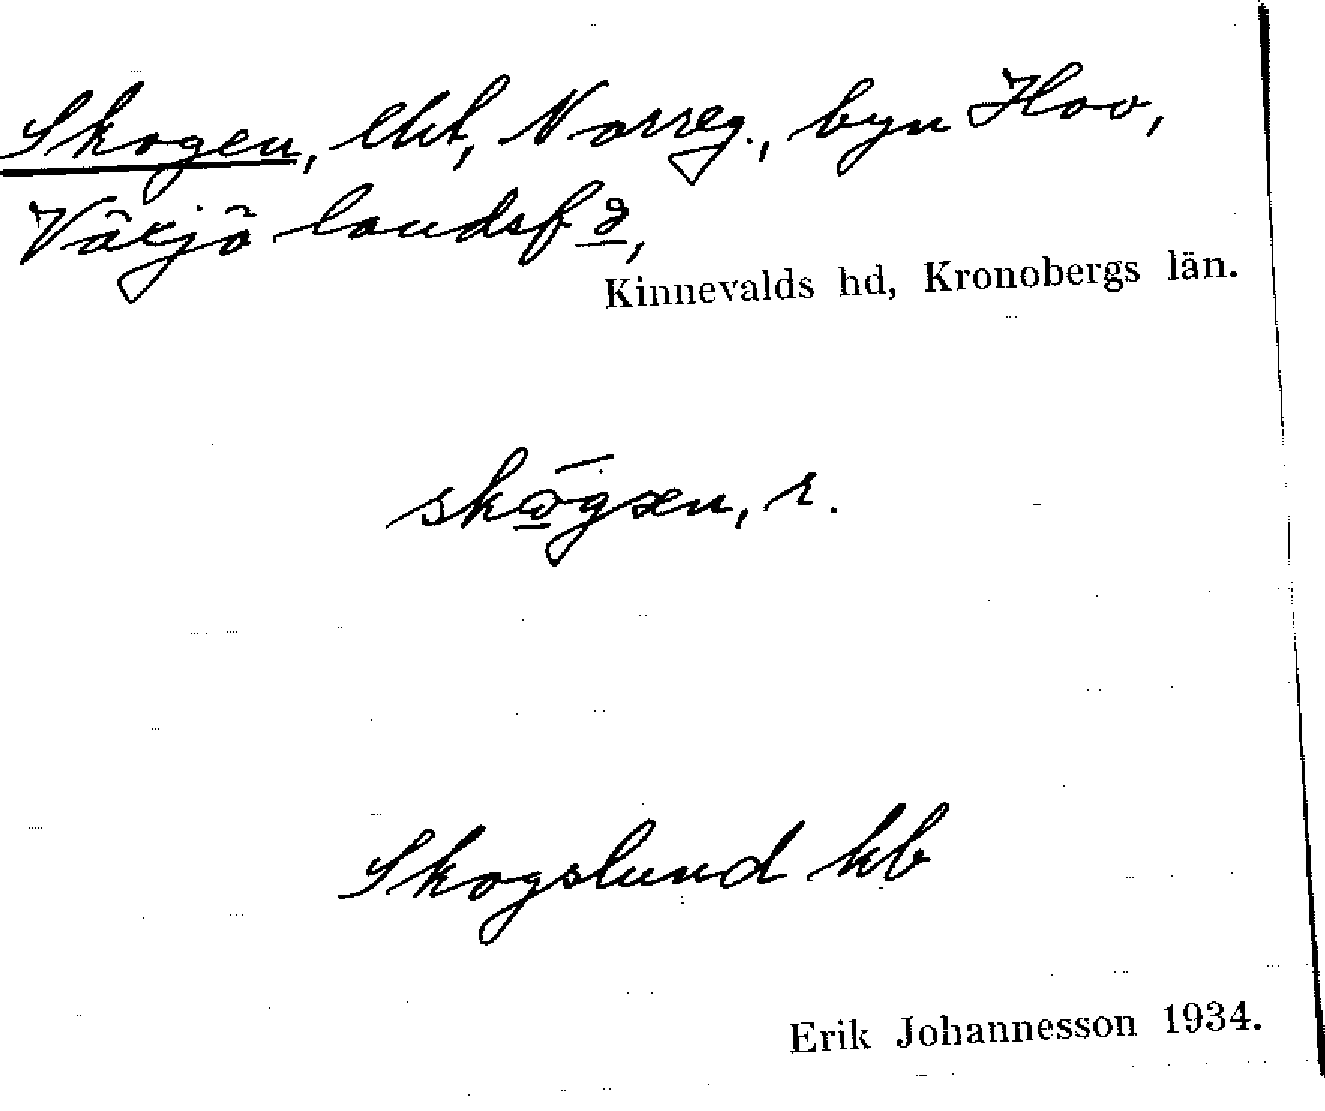 Skogen, lht, Norreg., byn Hov,
Växjö landsf
Kinnevalds hd, Kronobergs län.
r.
Skogslund kb
Erik Johannesson 1934.